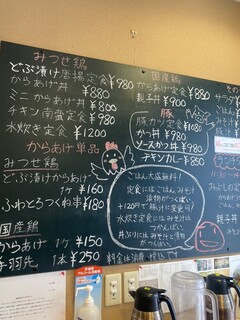 みつせ鶏
どぶ漬け唐揚定食 ¥980
からあげ丼 ¥880
ミニからあげ丼 ¥800
チキン南蛮定食 ¥980
水炊き定食 ¥1200
からあげ単品
みつせ鶏
どぶづけからあげ
1ケ ¥160
ふわとろつくね串 ¥180
国産鶏
からあげ 1ケ ¥150
手羽先 1本 ¥250
国産鶏
からあげ定食 ¥980
親子丼 ¥900
豚
豚カツ定食 ¥1080
かつ丼 ¥980
ソースかつ丼 ¥980
チキンカレー ¥850
ごはん大盛無料!
定食にはごはん みそ汁
漬物がつくばい
+120円で豚汁に変更可!
水炊き定食にはみそ汁は
つかんばい
丼ぶりにはみそ汁と漬物
がつくばい